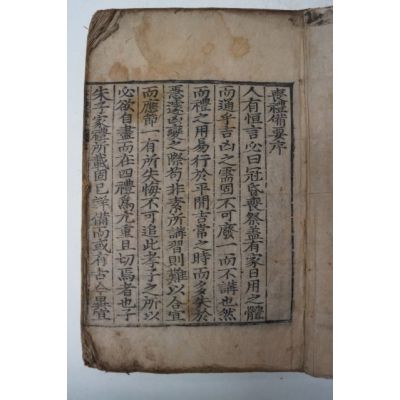 喪禮備要序
人有恒言必曰冠昏喪祭盖有家日用之體
而通乎吉凶之需固不可廢一而不講也然
而禮之用易行於平閒吉常之時而多失於
急遽凶變之際苟非素所講習則難以合宜
而應節一有所失悔不可追此孝子之所以
必欲自盡而在四禮爲尤重且切焉者也子
朱子家禮所載固已詳備而或有古今異宜